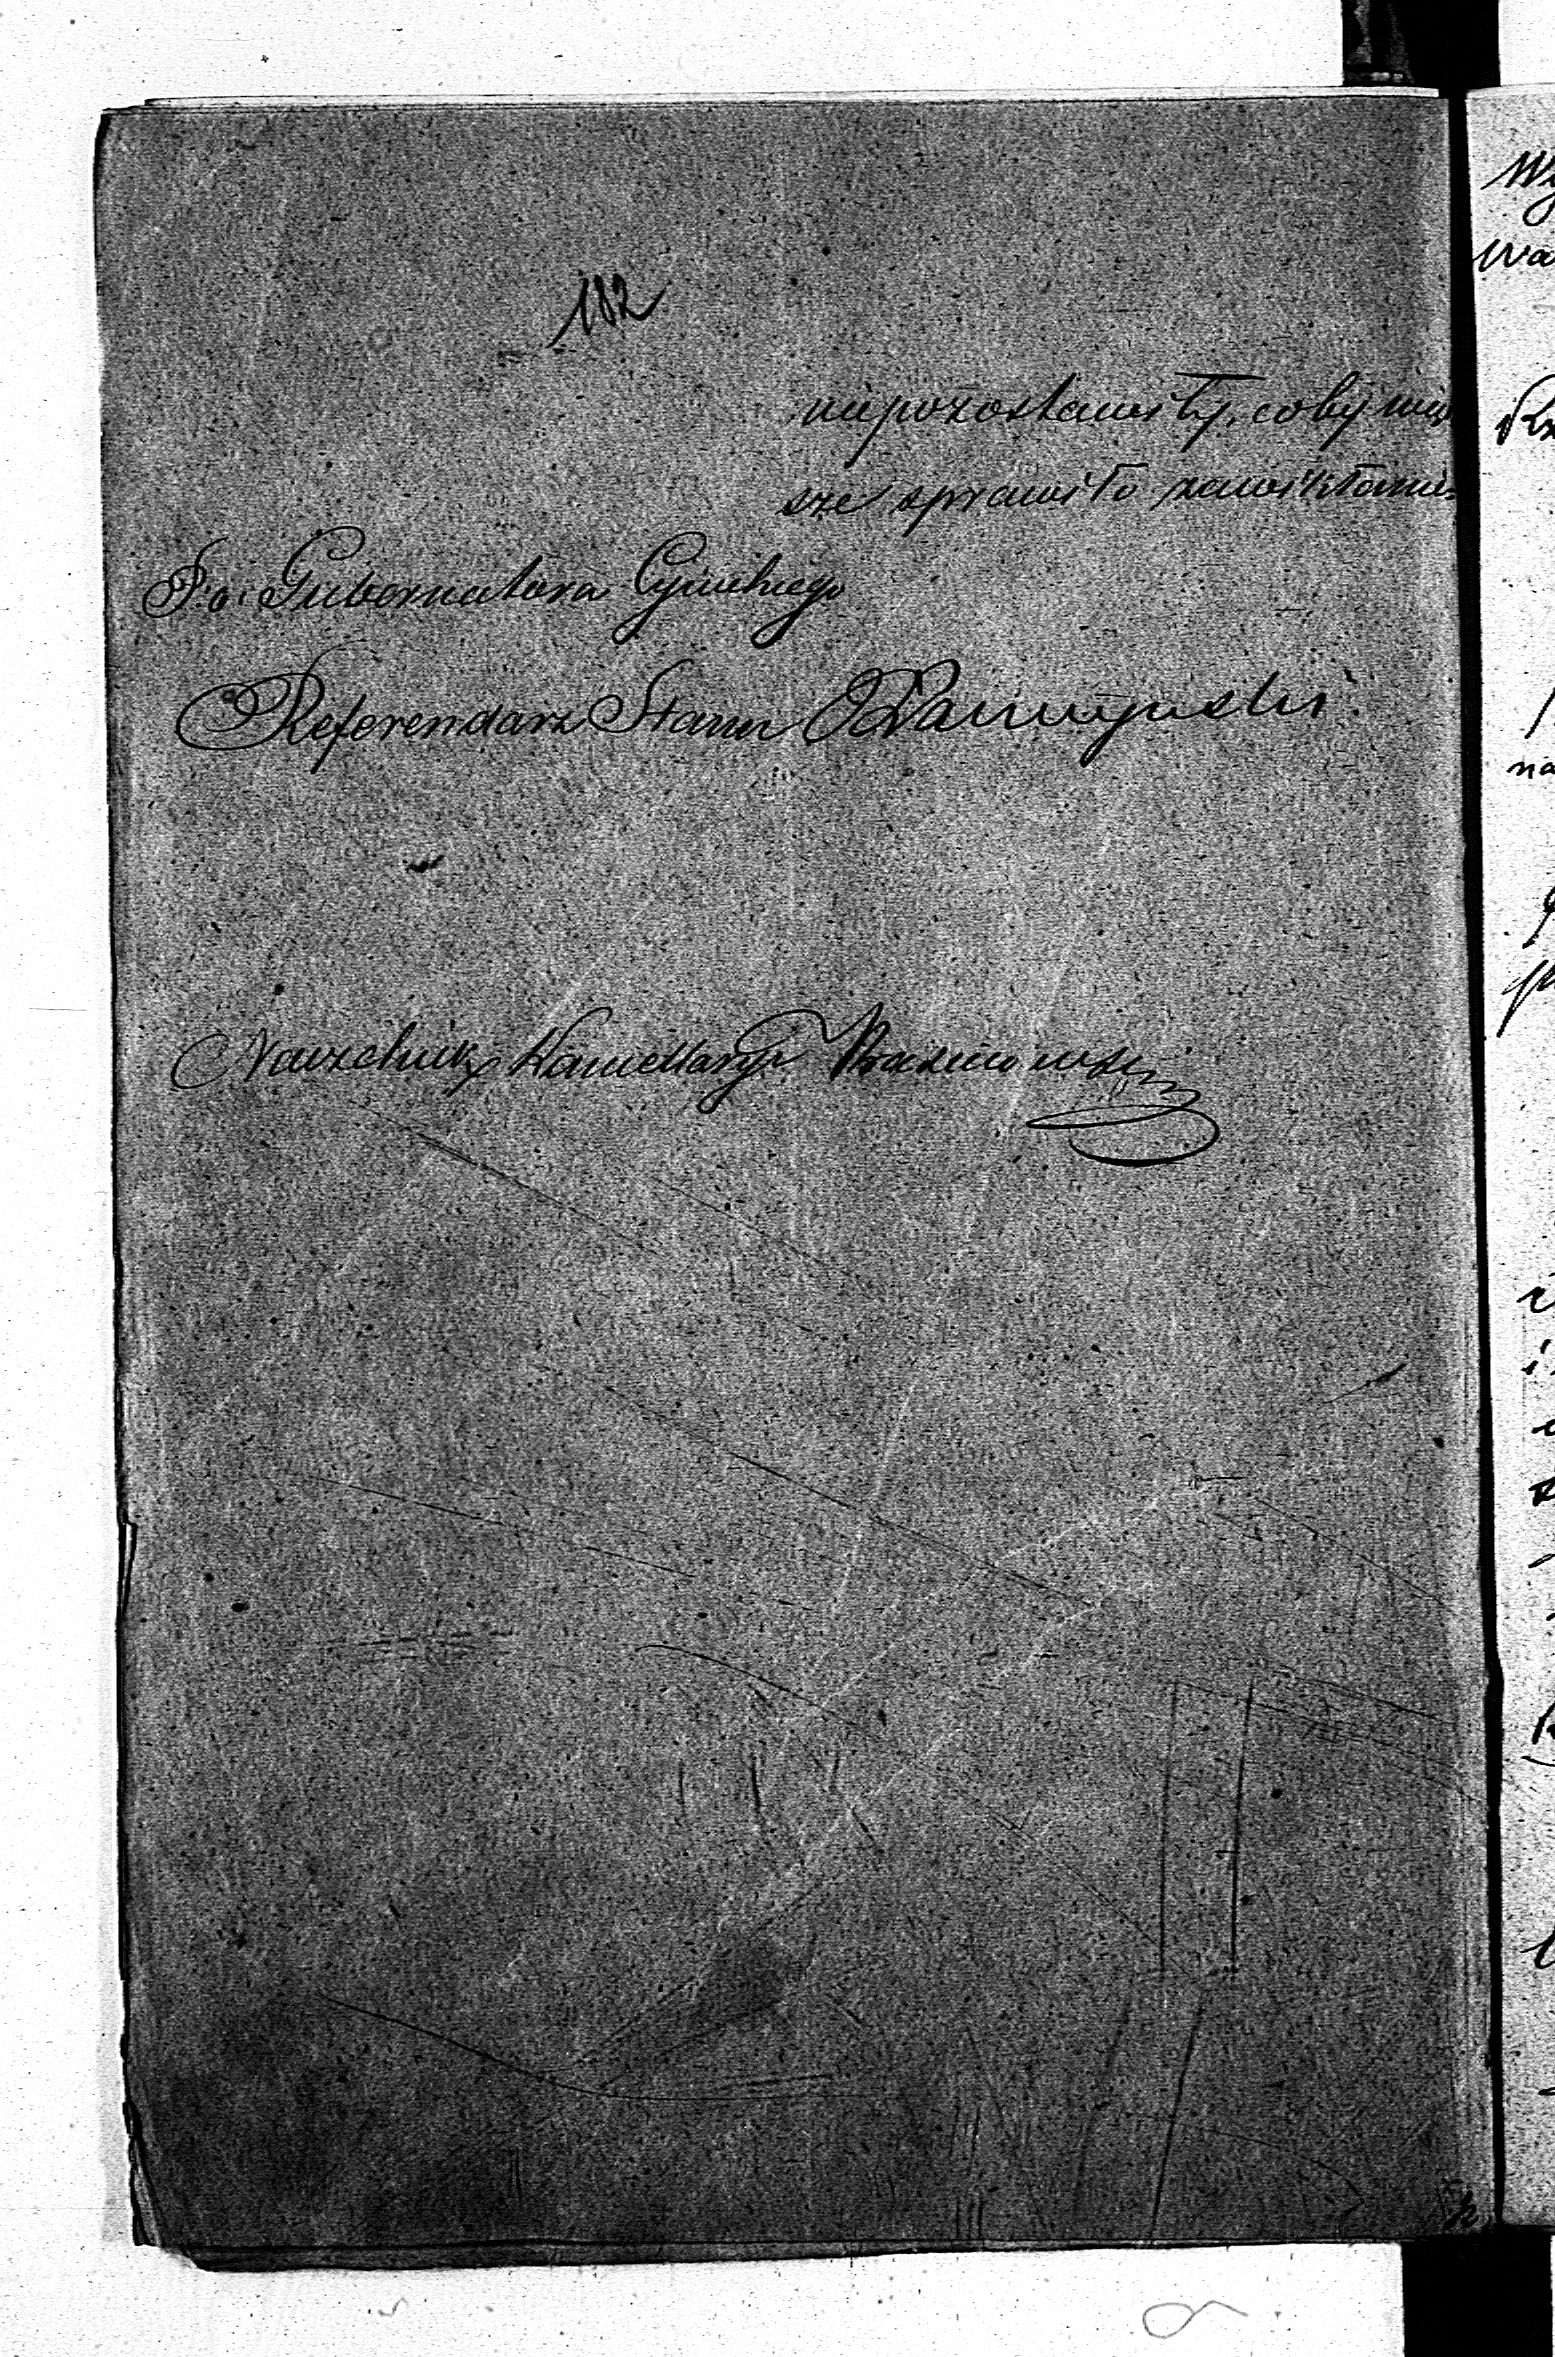 182
niepozostawiły, coby więk
sze sprawiło zawikłanie.
P.o. Gubernatora Cywilnego
Referendarz Stanu
Naczelnik Kancellaryi